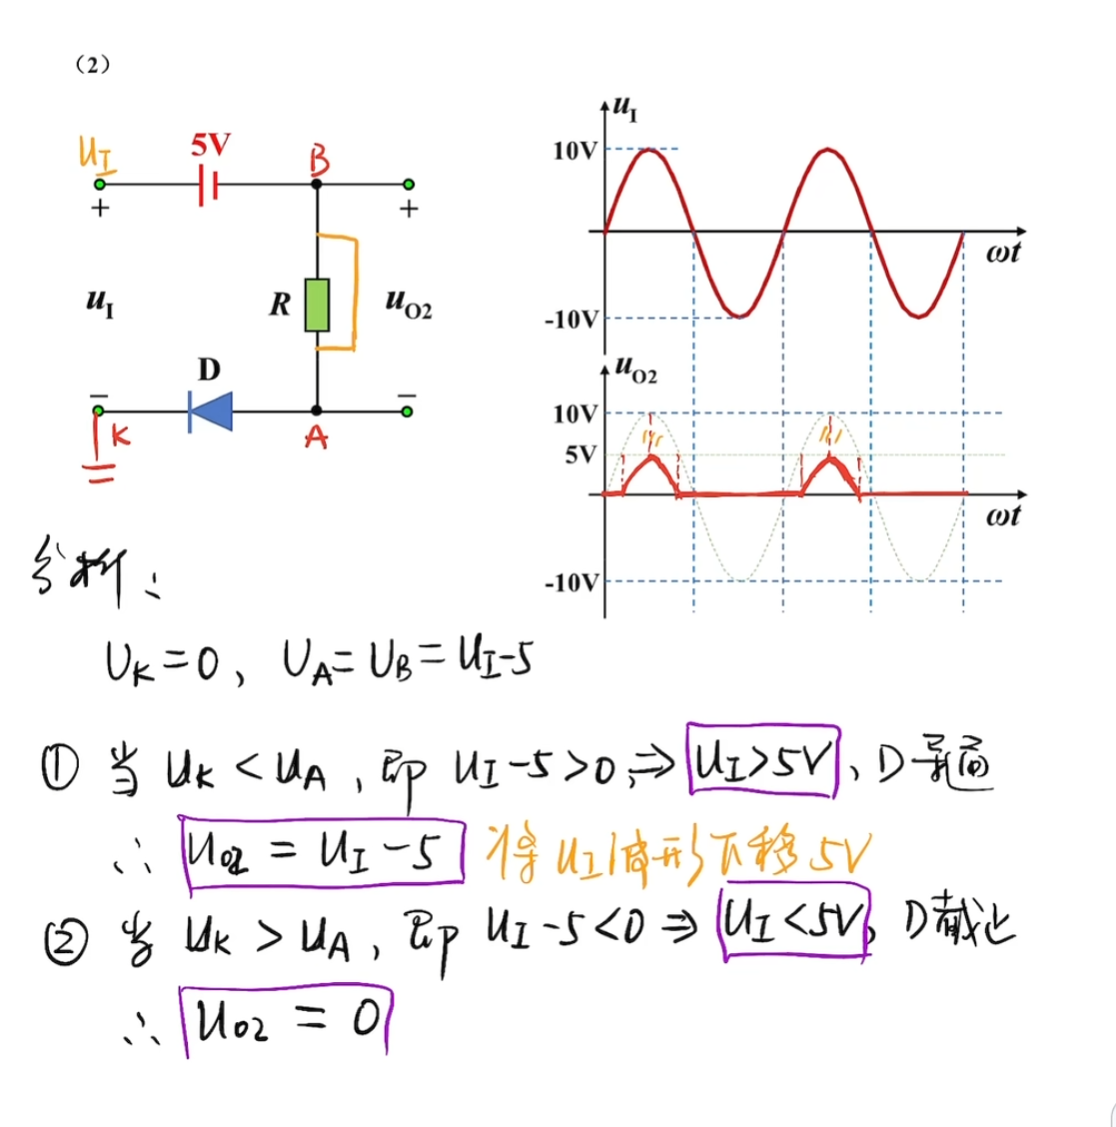 (2)
U_I
5V
B
+
+
u_I
R
u_O2
D
−
−
K
A
u_I
10V
ωt
-10V
u_O2
10V
5V
ωt
-10V
分析：
U_K=0, U_A=U_B=U_I-5
① 当 U_K<U_A, 即 U_I-5>0, ⇒ U_I>5V, D导通
∴ U_O2 = U_I-5 将U_I波形下移5V
② 当 U_K>U_A, 即 U_I-5<0 ⇒ U_I<5V, D截止
∴ U_O2 = 0